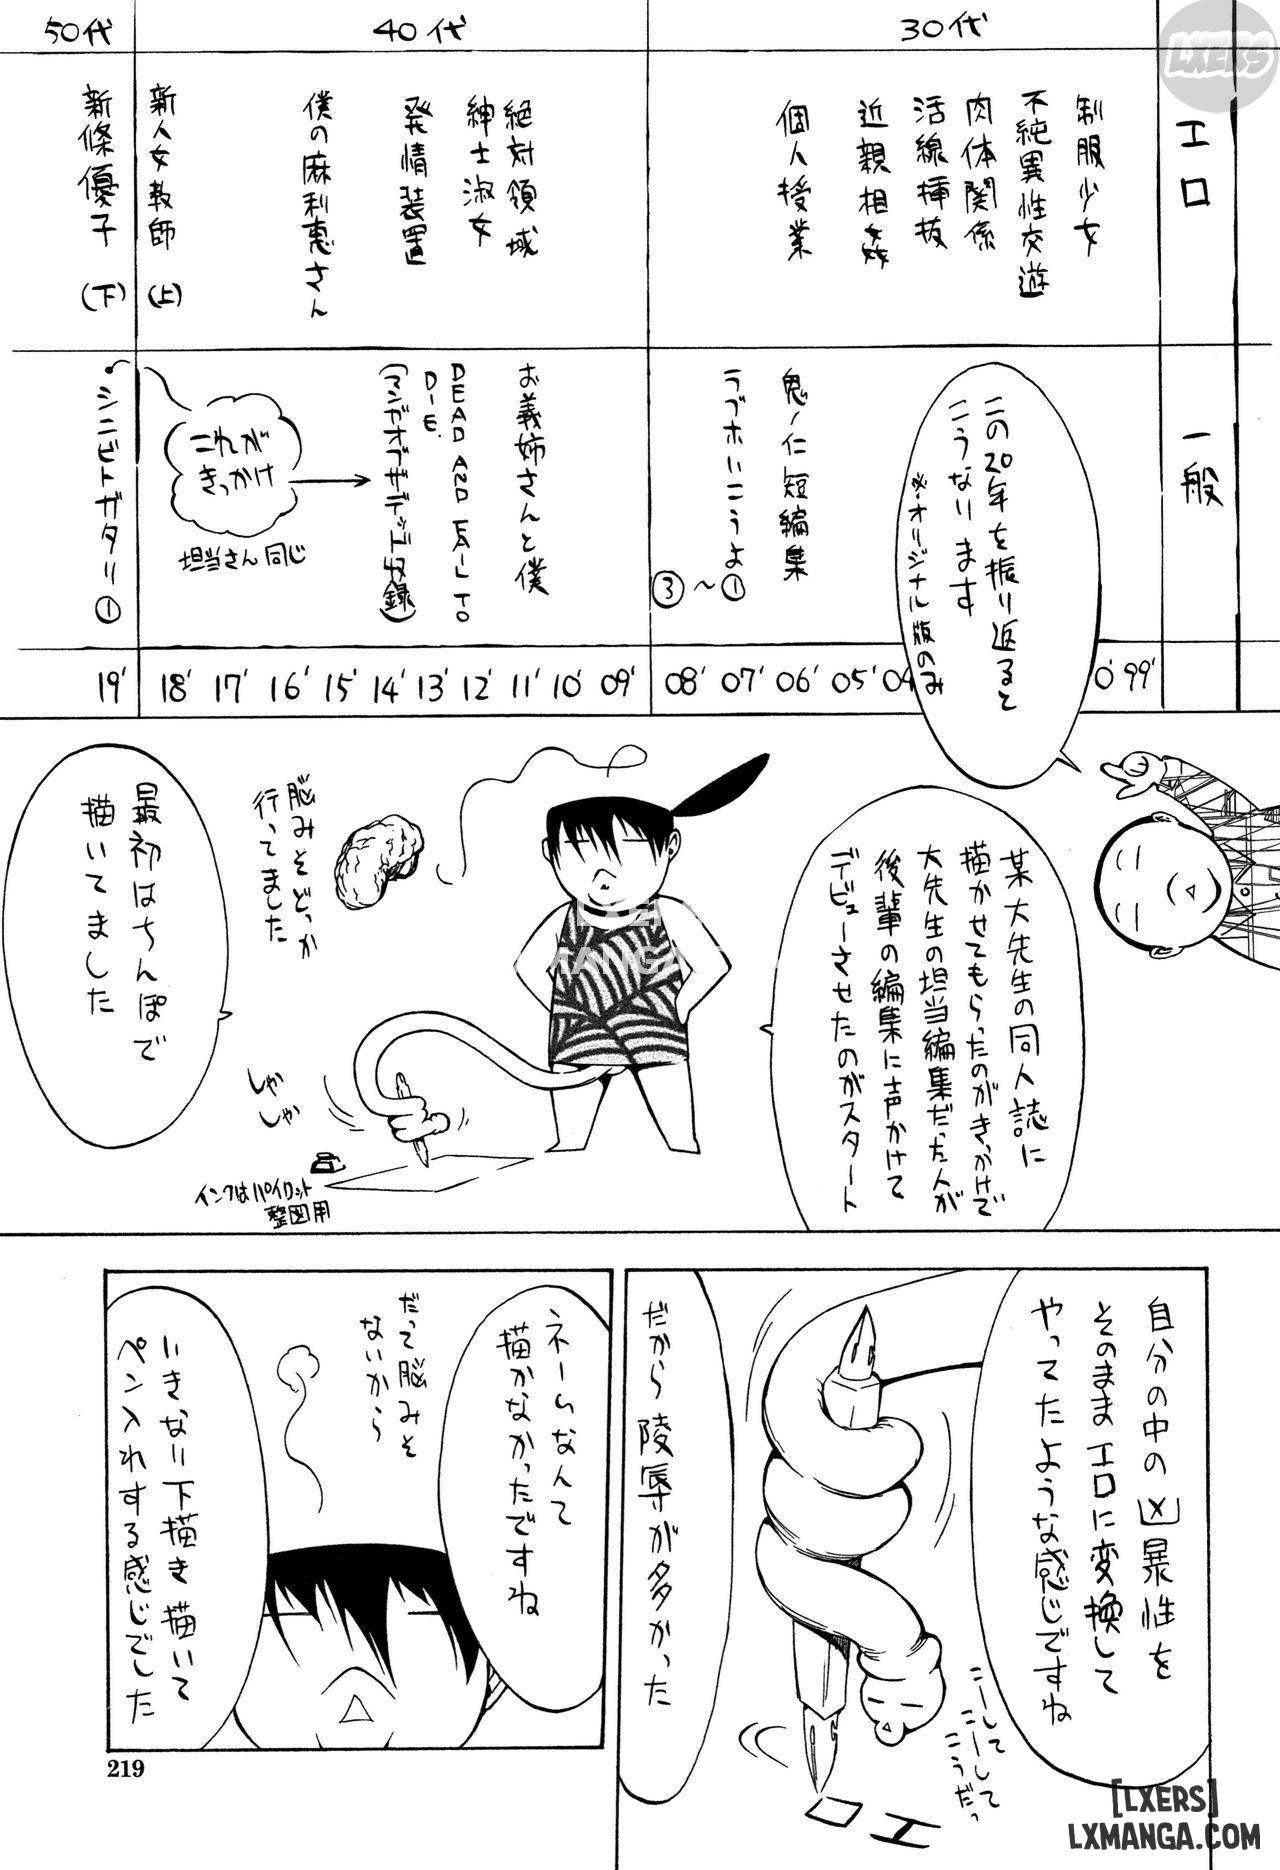 エロ
一般
30代
40代
50代
制服少女
不純異性交遊
肉体関係
活線挿抜
近親相姦
個人授業
絶対領域
紳士淑女
発情装置
僕の麻利恵さん
新人女教師(上)
新條優子(下)
鬼ノ仁短編集
ラブホいこうよ①
~
③
お義姉さんと僕
DEAD AND FAIL TO
DIE.
(マンガオブザデッド収録)
これが
きっかけ
担当さん同じ
シニビトガタリ①
この20年を振り返ると
こうなります
※オリジナル版のみ
99'
0'
04
05'
06'
07'
08'
09'
10'
11'
12'
13'
14'
15'
16'
17'
18'
19'
某大先生の同人誌に
描かせてもらったのがきっかけで
大先生の担当編集だった人が
後輩の編集に声かけて
デビューさせたのがスタート
脳みそどっか
行ってました
最初はちんぽで
描いてました
しゃか
しゃか
インクはパイロット
製図用
自分の中の凶暴性を
そのままエロに変換して
やってたような感じですね
こーして
こーして
こうだっ
エロ
だから陵辱が多かった
ネームなんて
描かなかったですね
だって脳みそ
ないから
いきなり下描き描いて
ペン入れする感じでした
219
LXERS
LXERS
MANGA
[LXERS]
LXMANGA.COM